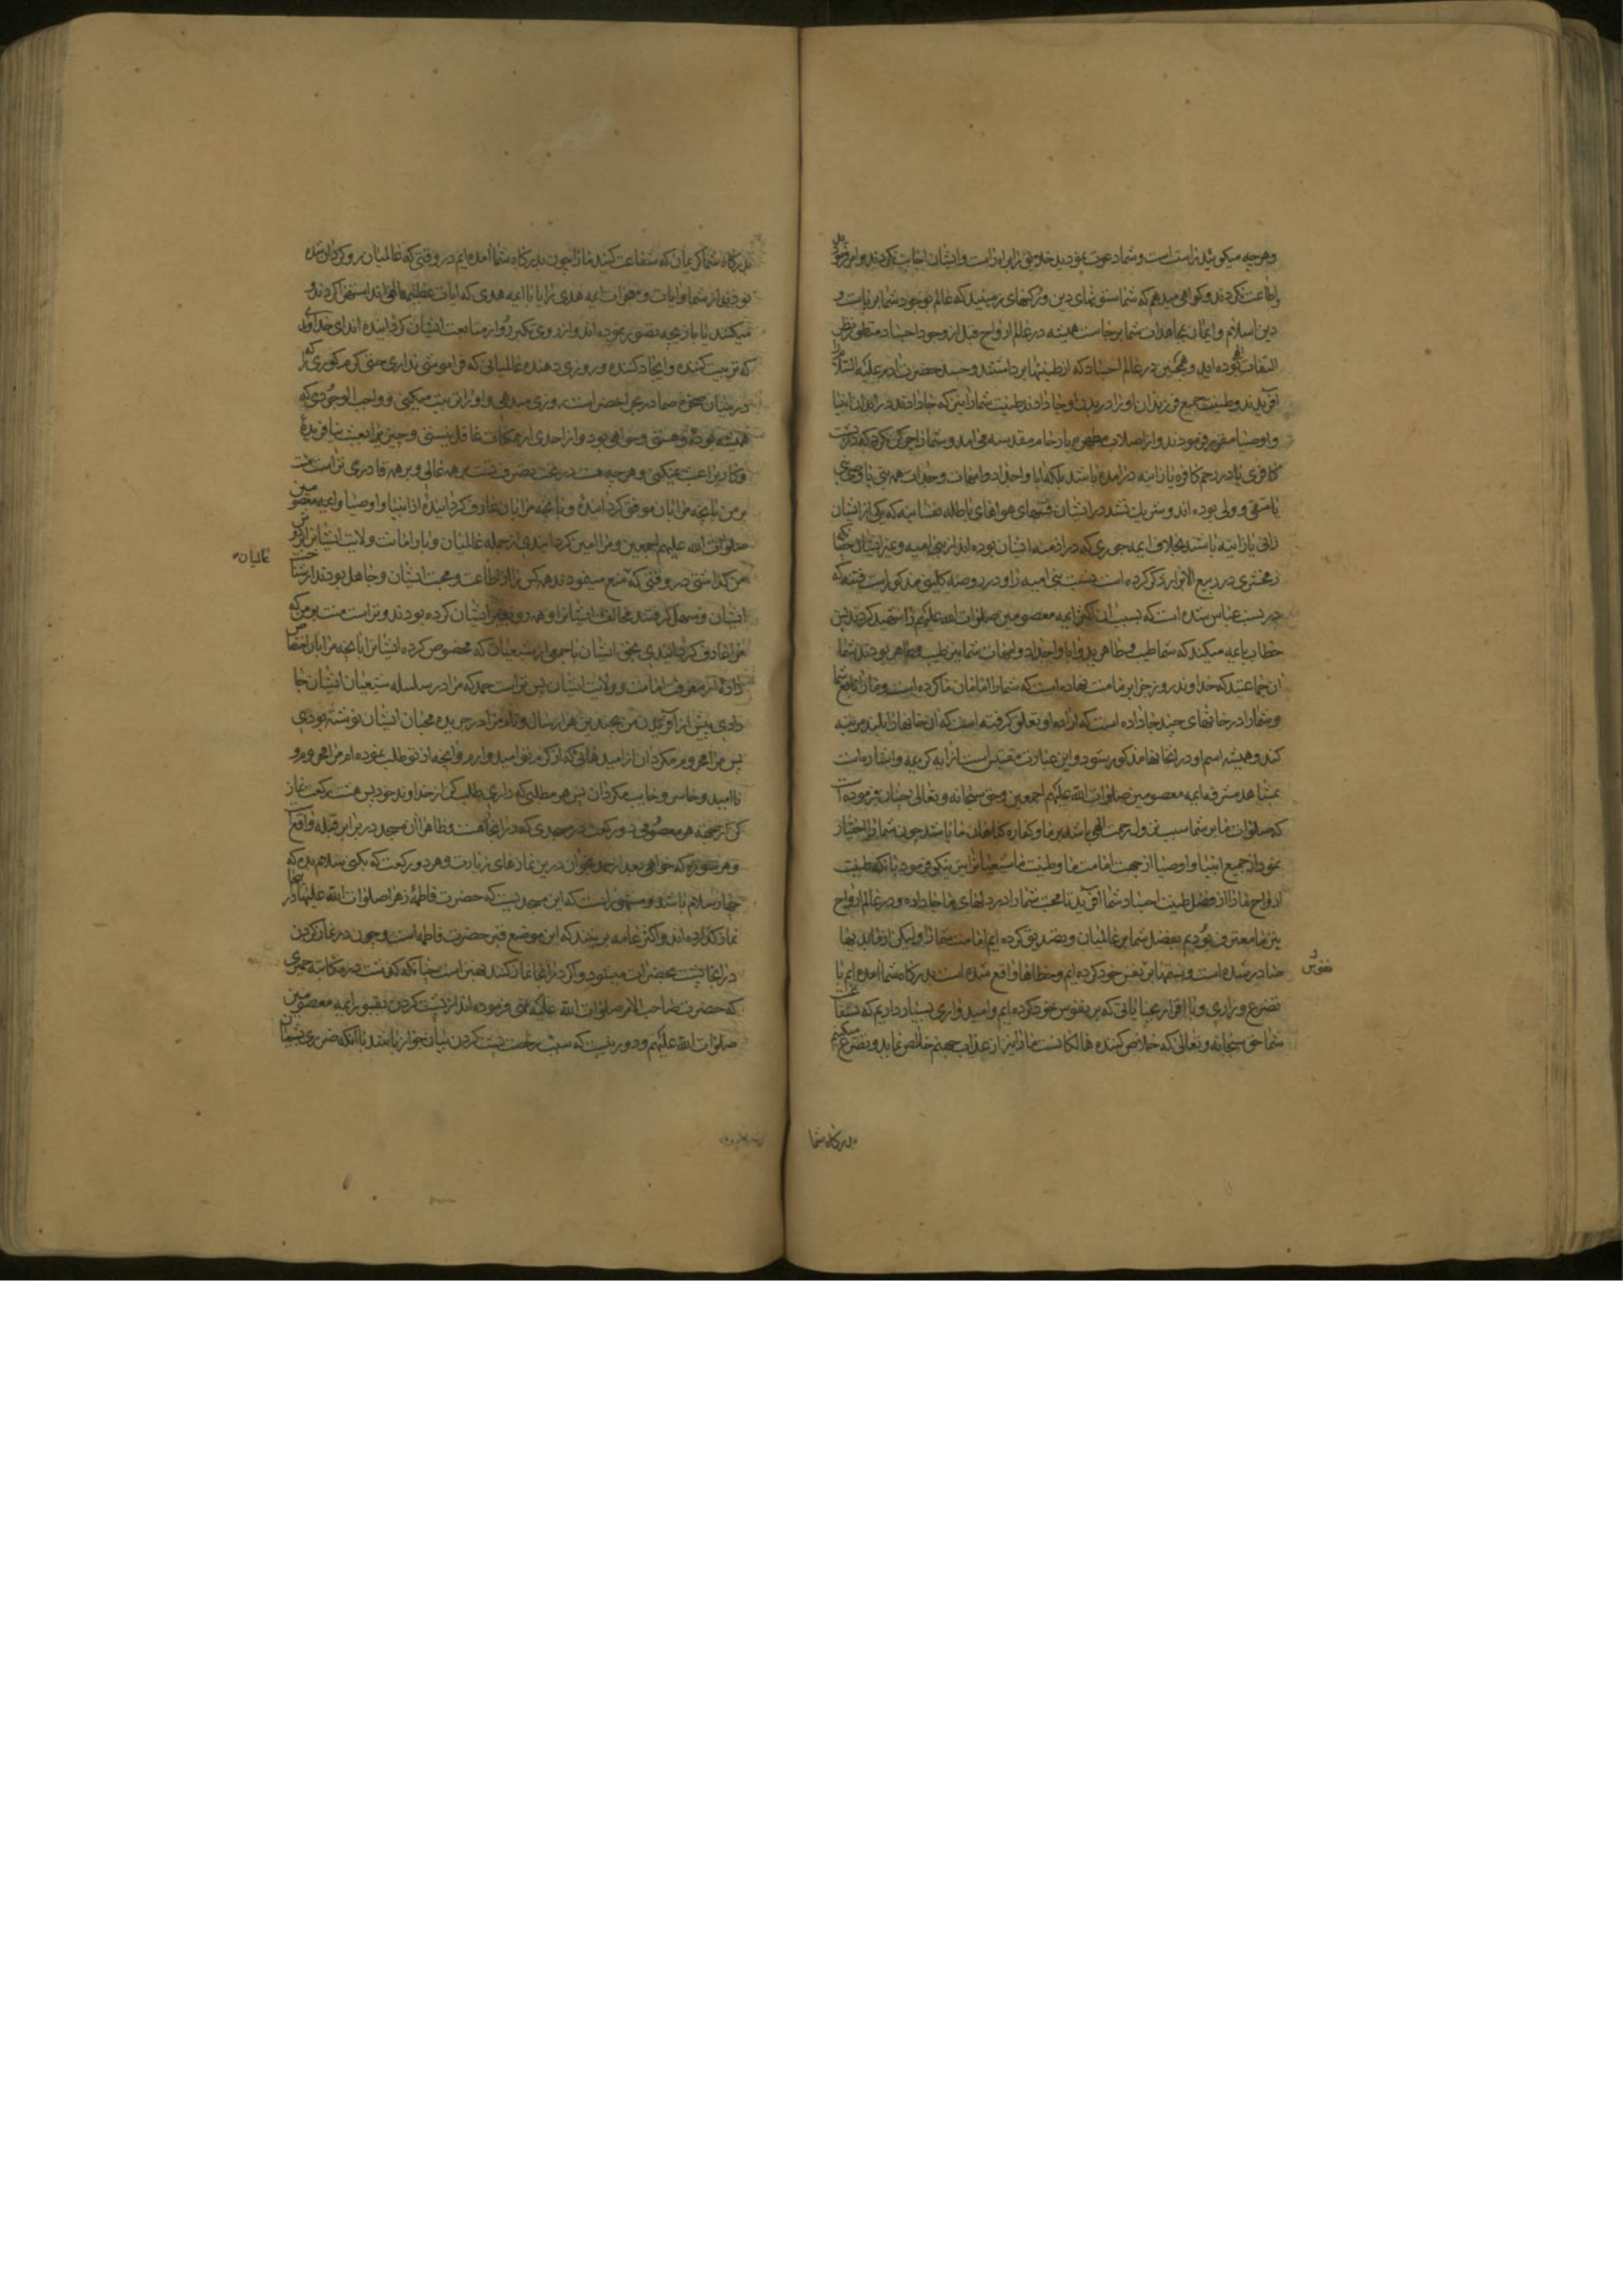 وهرچه میکویید راست است و شما دعوت نمودید خلایق را براه راست و ایشان اجابت نکردند و امر
و اطاعت نکردند و کواهی میدهم که شما ستونهای دین و رکنهای زمینید که عالم بوجود شما برپاست و
دین اسلام و ایمان شما برجاست همیشه در عالم ارواح قبل از وجود اجساد منظور نظر
التفات بوده اید و همچنین در عالم اجساد که از طینتها برداشتند و جسد حضرت ادم علیه السلام را
آفریدند و طینت جمیع فرزندان او را در بدن او جا دادند طینت شما را نیز که جا دادند در ابدان انبیا
و اوصیا مقرر فرمودند و از اصلاب مطهره بارحام مقدسه می امد و شما را چرکن نکرد که در پشت
کافری یا در رحم کافره یا زانیه در امده باشد بلکه ابا و اجداد و امهات و جدات همه نبی یا وصی نبی
یا متقی و ولی بوده اند و شریک نشد در ایشان فتنهای هواهای باطله نفسانیه که یکی از ایشان
زانی یا زانیه باشد بخلاف ایمه جوری که در ازمنه ایشان بوده اند از بنی امیه و غیر ایشان چنانکه
زمخشری در ربیع الابرار ذکر کرده است نسب بنی امیه را و در روضه کلینی مذکور است فتنه که
در نسب عباس شده است که بسبب ان اکثر ایمه معصومین صلوات الله علیهم را شهید کردند پس
خطاب بایمه میکند که شما طیب و طاهرید و ابا و اجداد و امهات شما نیز طیب و طاهر بودند شما
ان جماعتید که خداوند روز جزا بر ما منت نهاده است که شما را امامان ما کرده است و ما را تابع شما
و شما را در خانهای چند جا داده است که اراده او تعلق کرفته است که ان خانها را بلند مرتبه
کند و همیشه اسم او در انخانها مذکور شود و این عبارت مقتبس است از ایه کریمه و اشاره است
بمشاهد مشرفه ایمه معصومین صلوات الله علیهم اجمعین و حق سبحانه و تعالی چنان فرموده است
که صلوات ما بر شما سبب نزول رحمت الهی باشد بر ما و کفاره کناهان ما باشد چون شما را اختیار
نمود از جمیع انبیا و اوصیا از جهت امامت ما و طینت ما شیعیانرا نیز نیکو فرمود بانکه طینت
ارواح ما را از فضل طینت اجساد شما آفرید تا محبت شما را در دلهای ما جا داده و در عالم ارواح
نیز ما معترف بودیم بفضل شما بر عالمیان و تصدیق کرده ایم امامت شما را ولیکن ازما بدیها
صادر شده است و ستمها بر نفس خود کرده ایم و خطاها واقع شده است بدرکاه شما امده ایم با
نفوس
تضرع و زاری و با اقرار بجنایاتی که بر نفوس خود کرده ایم و امیدواری بسیار داریم که بشفاعت
شما حق سبحانه و تعالی که خلاص کننده هالکانست ما را نیز از عذاب جهنم خلاص نماید و تضرع میکنیم
بدرکاه شما
بدرکاه شما کریمان که شفاعت کنید ما را چون بدرکاه شما امده ایم در وقتی که عالمیان رو کردان شده
بودند از شما و ایات و معجزات ایمه هدی را یا با ایمه هدی که ایات عظیمه الهی اند استهزا کردند و
میکنند یا بازیچه تصور نموده اند و از روی تکبر رو از متابعت ایشان کردانیده اند ای خداوندی
که تربیت کننده و ایجاد کننده و روزی دهنده عالمیانی که فراموشی نداری حتی کرم کوری را که
در میان صخره صما در بحر اخضر است روزی میدهی و او را تربیت میکنی و واجب الوجودی که
همیشه بوده و هستی و خواهی بود و از احدی از ممکنات غافل نیستی و چیزی را بعبث نیافریده
و کاریرا عبث نمیکنی و هرچه هست در تحت تصرف تست بر همه عالی و بر همه قادری تراست منت
بر من بانچه مرا بان موفق کردانیده و بانچه مرا بان عارف کردانیده از انبیا و اوصیا و ایمه معصومین
صلوات الله علیهم اجمعین و مرا امین کردانیدی از جمله عالمیان و بار امانت ولایت ایشانرا بر
عالیان
من کذاشتی در وقتی که منع مینمودند همه کس را از اطاعت و محبت ایشان و جاهل بودند از شناخت
ایشان و سهل کرفتند مخالفت ایشانرا و همه رو بغیر ایشان کرده بودند و تراست منت بر من که
مرا عارف کردانیدی بحق ایشان با جمعی از شیعیان که مخصوص کرده ایشانرا بانچه مرا بان اختصاص
داده از معرفت امامت و ولایت ایشان پس تراست حمد که مرا در سلسله شیعیان ایشان جا
دادی پیش از آفریدن من بچندین هزار سال و نام مرا در جریده محبان ایشان نوشته بودی
پس مرا محروم مکردان از امیدهائی که از کرم تو امید وارم و انچه از تو طلب نموده ام مرا محروم و
ناامید و خاسر و خایب مکردان پس هر مطلبی که داری طلب کن از خداوند خود پس هشت رکعت نماز
کن از جهة هر معصومی دو رکعت در مسجدی که در انجا هست و ظاهرا ان مسجد در برابر قبله واقع است
و هر سوره که خواهی بعد از حمد بخوان درین نمازهای زیارت و هر دو رکعت که بکنی سلام بده که
چهار سلام باشد و مشهور است که این مسجدیست که حضرت فاطمه زهرا صلوات الله علیها در انجا
نماز کذارده اند و اکثر عامه برینند که این موضع قبر حضرت فاطمه است و چون در نماز کردن
در انجا پشت بحضرات میشود و اکر در انجا نماز نکنند بهتر است چنانکه کذشت در مکاتبه حمیری
که حضرت صاحب الامر صلوات الله علیه نهی فرموده اند از پشت کردن بقبور ایمه معصومین
صلوات الله علیهم و دور نیست که سبب رخصت پشت کردن بیان جواز باشد با انکه ضرری بشیعیان